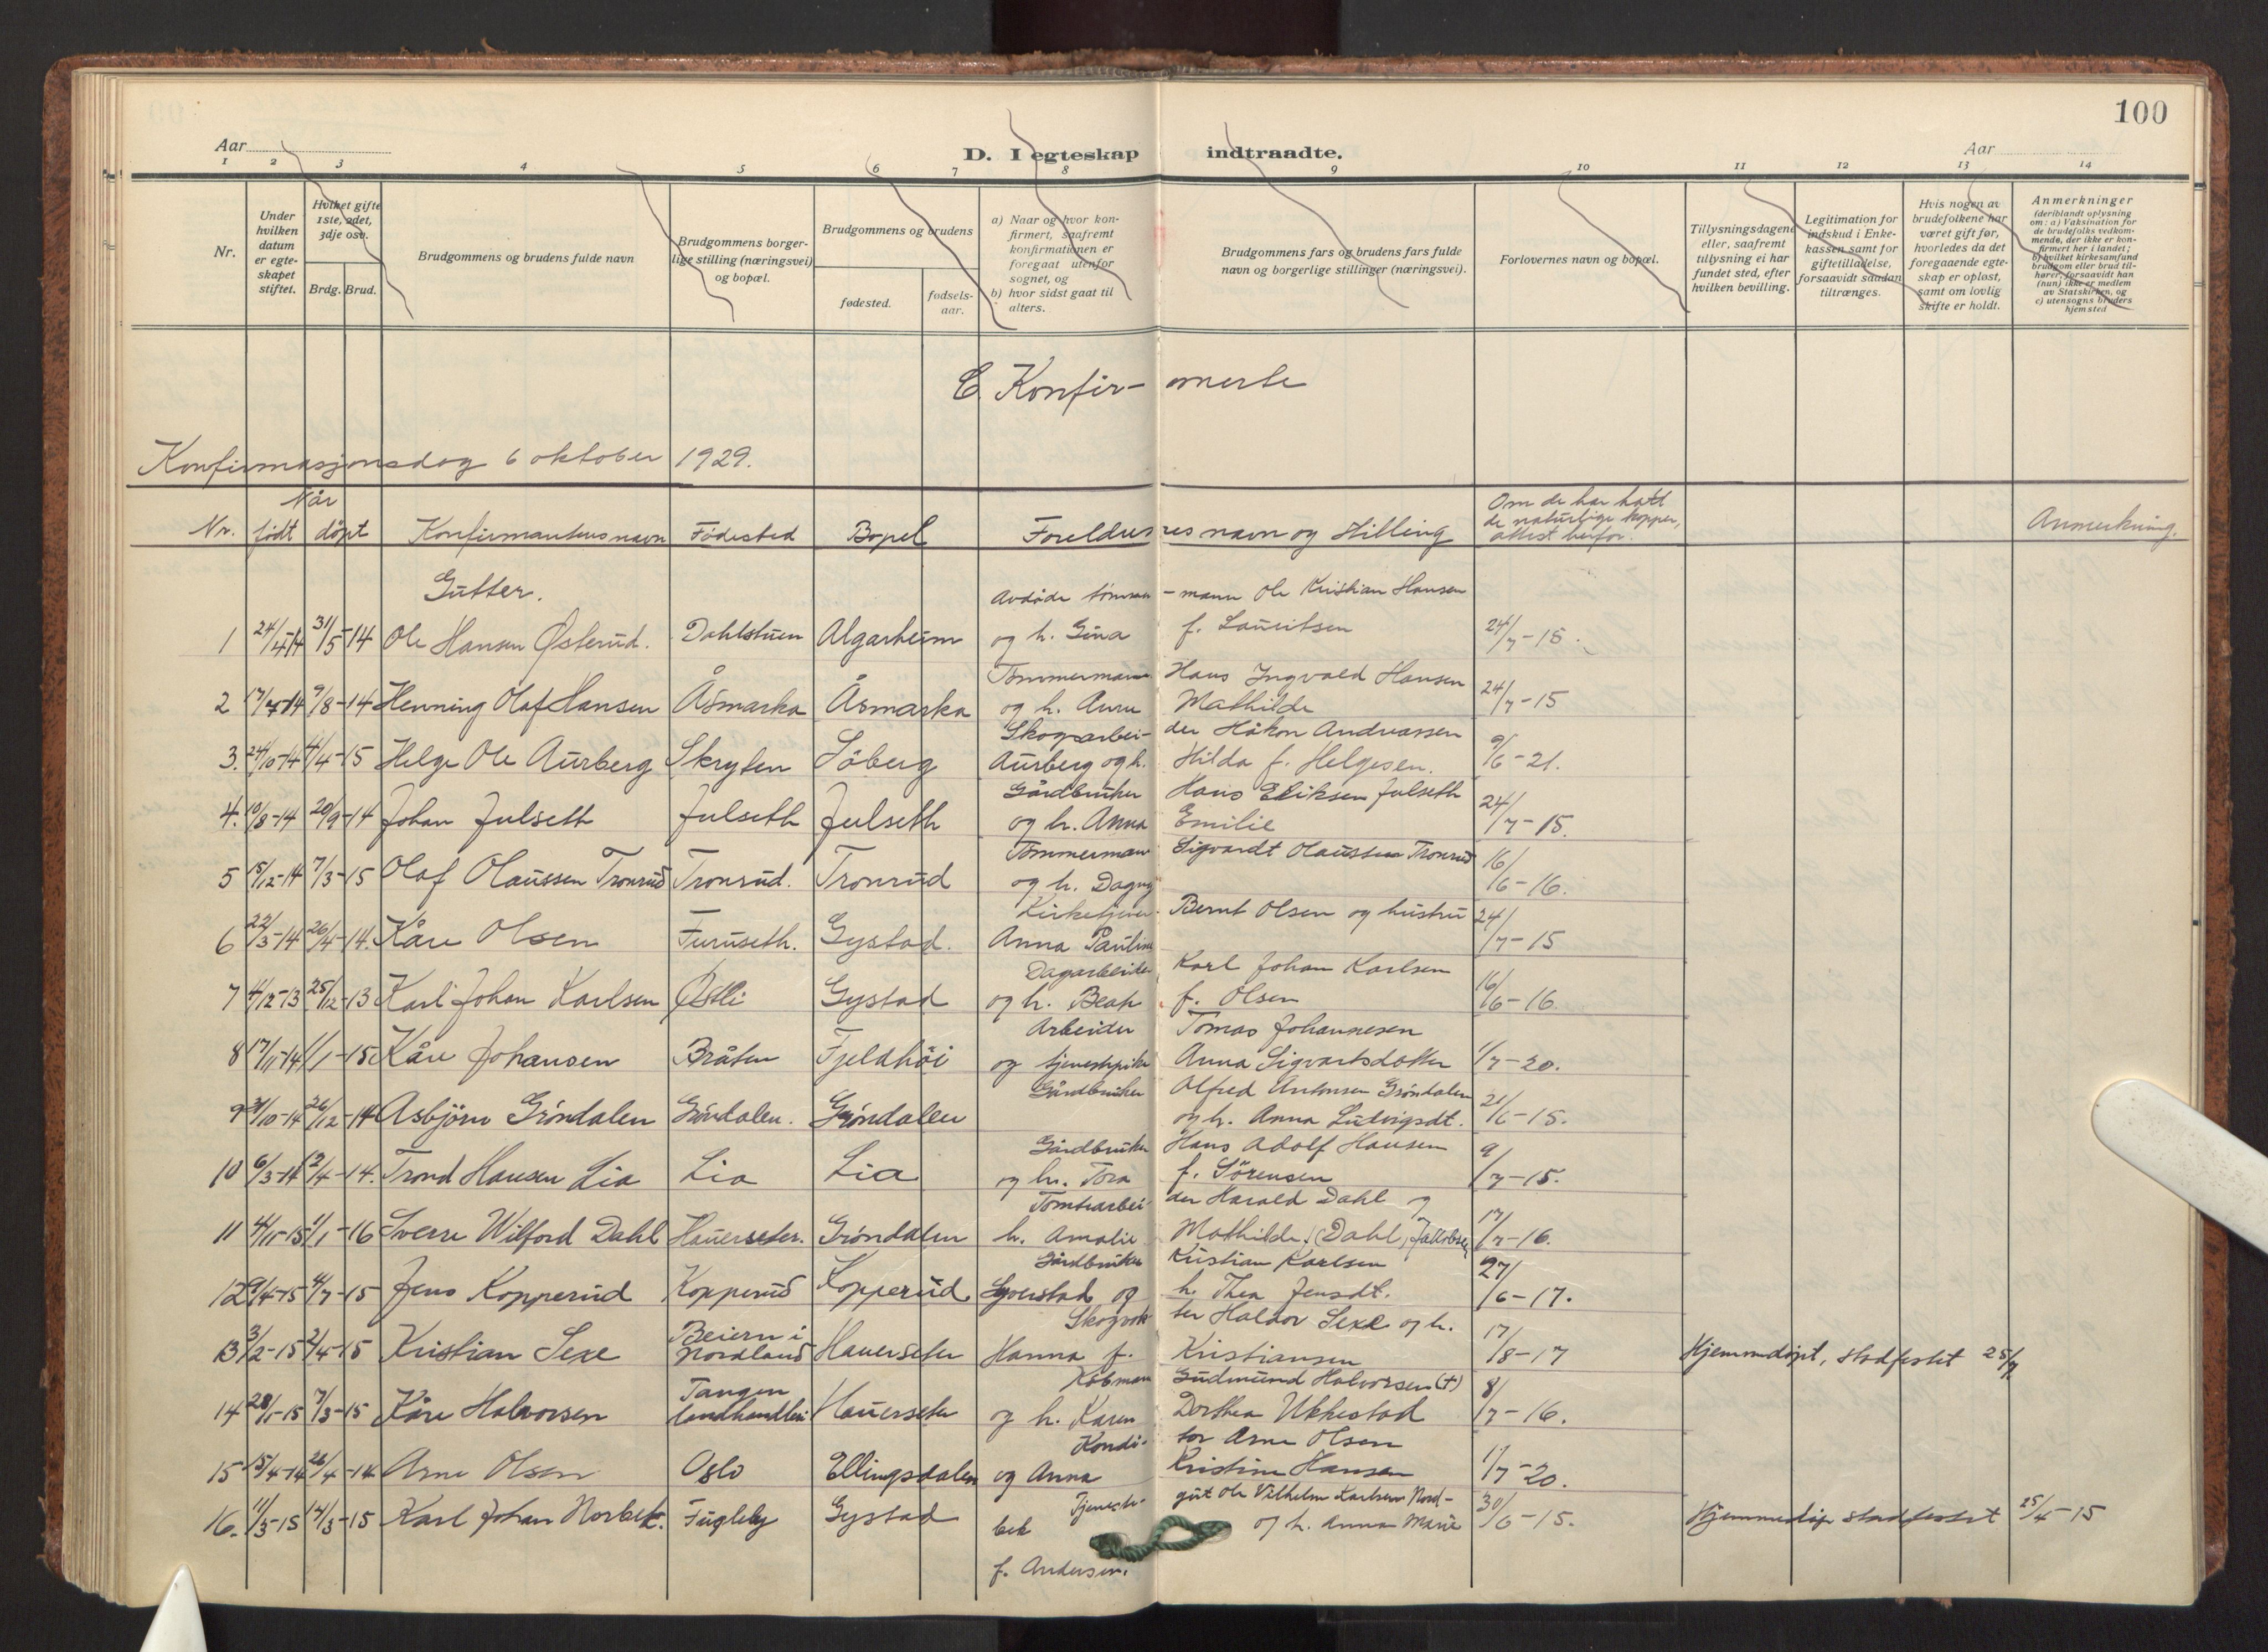 100
Aar
D. I egteskap indtraadte.
Aar
1 2 3 4 5 6 7 8 9 10 11 12 13 14
Nr.
Under hvilken datum er egteskapet stiftet.
Hvilket gifte 1ste, 2det, 3dje osv.
Brdg. Brud.
Brudgommens og brudens fulde navn
Brudgommens borgerlige stilling (næringsvei) og bopæl.
Brudgommens og brudens
fødested.
fødselsaar.
a) Naar og hvor konfirmert, saafremt konfirmationen er foregaat utenfor sognet, og
b) hvor sidst gaat til alters.
Brudgommens fars og brudens fars fulde navn og borgerlige stillinger (næringsvei).
Forlovernes navn og bopæl.
Tillysningsdagene eller, saafremt tillysning ei har fundet sted, efter hvilken bevilling.
Legitimation for indskud i Enkekassen samt for giftetilladelse, forsaavidt saadan tiltrænges.
Hvis nogen av brudefolkene har været gift før, hvorledes da det foregaaende egteskap er opløst, samt om lovlig skifte er holdt.
Anmerkninger (deriblandt oplysning om: a) Vaksination for de brudefolks vedkommende, der ikke er konfirmert her i landet; b) hvilket kirkesamfund brudgom eller brud tilhører, forsaavidt han (hun) ikke er medlem av Statskirken, og c) utensogns bruders hjemsted
C. Konfir-merte
Konfirmasjonsdag 6 oktober 1929.
Nr. Når født døpt Konfirmantens navn Fødested Bopel Foreldrenes navn og stilling Om de har hatt de naturlige kopper, attest herfor. Anmerkning.
Gutter.
Avdøde tømmer-mann Ole Kristian Hansen
1 24/4-14 31/5-14 Ole Hansen Østerud. Dahlstuen Algarheim og h. Gina f. Lauritsen 24/7-15.
Tømmermann Hans Ingvald Hansen
2 17/7-14 9/8-14 Henning Olaf Hansen Åsmarka Åsmarka og h. Anne Mathilde 24/7-15
Skogarbei-der Håkon Andreassen
3. 24/10-14 4/4-15 Helge Ole Aurberg Skryten Söberg Aurberg og h. Hilda f. Helgesen. 9/6-21.
Gårdbruker Hans Eriksen Julseth
4. 10/8-14 20/9-14 Johan Julseth Julseth Julseth og h. Anna Emilie 24/7-15.
Tømmermann Sigvardt Olaussen Tronrud
5 15/12-14 7/3-15 Olaf Olaussen Tronrud Tronrud. Tronrud og h. Dagny 16/6-16.
Kirketjener Bernt Olsen og hustru
6 22/3-14 26/4-14. Kåre Olsen Furuseth. Gystad. Anna Pauline 24/7-15
Dagarbeider Karl Johan Karlsen
7 4/12-13 25/12-13 Karl Johan Karlsen Østli Gystad og h. Beate f. Olsen 16/6-16.
Arbeider Tomas Johannesen
8 17/11-14 1/1-15 Kåre Johansen Bråten Fjeldhöi og tjenestepike Anna Sigvartsdatter 1/7-20.
Gårdbruker Alfred Antonsen Gröndalen
9 31/10-14 26/12-14 Asbjörn Gröndalen Gröndalen. Gröndalen og h. Anna Ludvigsdt. 21/6-15.
Gårdbruker Hans Adolf Hansen
10 6/3-14 12/4-14. Trond Hansen Lia Lia Lia og h. Tora f. Sörensen 9/7-15.
Tomtearbei-der Harald Dahl og
11 4/11-15 1/1-16 Sverre Wilford Dahl Hauerseter. Gröndalen h. Amalie Mathilde (Dahl) Jakobsen 17/7-16.
Gårdbruker Kristian Karlsen
12 9/4-15 4/7-15 Jens Kopperud Kopperud Kopperud Syverstad og h. Thea Jensdt. 27/6-17.
Skogvok-ter Haldor Sexe og h.
13 3/2-15 2/4-15 Kristian Sexe Beiern i Nordland Hauerseter Hanna f. Kristiansen 17/8-17 Hjemmedöpt, stadfestet 25/7
Kobmann Gudmund Halvorsen (+)
14 28/1-15 7/3-15 Kåre Halvorsen Tangen landhandleri Hauerseter og h. Karen Dorthea Ukkestad 8/7-16.
Kondi-tor Arne Olsen
15 15/4-14 26/4-14 Arne Olsen Oslo Ellingsdalen og Anna Kristine Hansen 1/7-20.
Tjeneste-gut Ole Vilhelm Karlsen Nord-
16. 11/3-15 14/3-15 Karl Johan Norbek. Fugleby Gystad bek og h. Anna Marie 30/6-15. Hjemmedöpt stadfestet 25/4-15
f. Andersen.